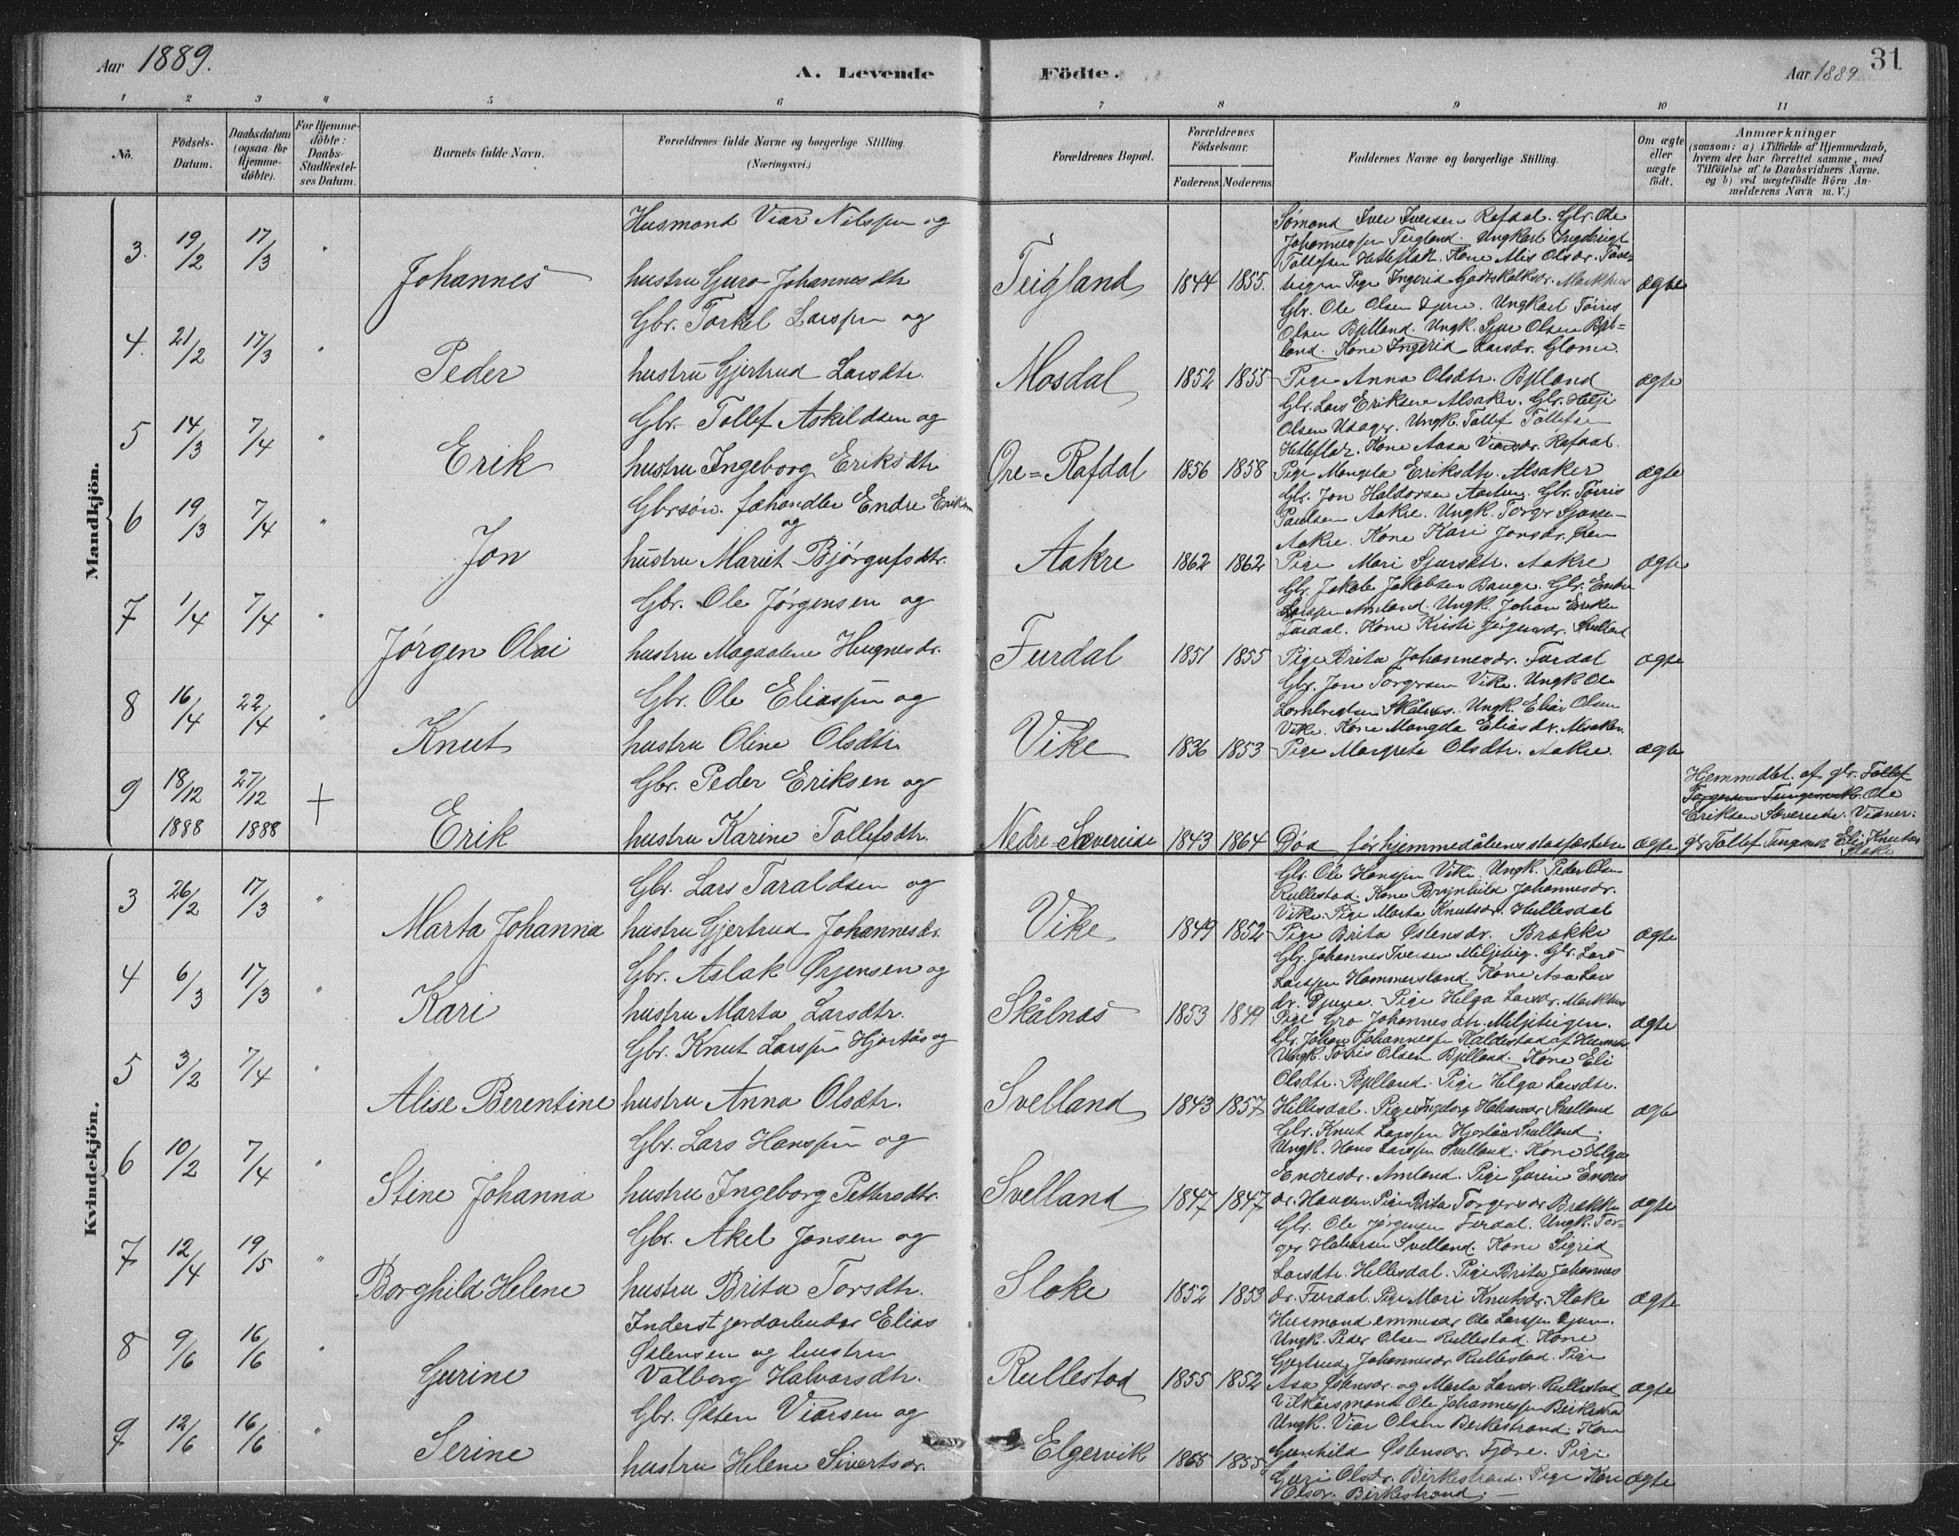 Aar 1889.
A. Levende Födte.
Aar 1889
31
1 2 3 4 5 6 7 8 9 10 11
No.
Födsels-
Datum.
Daabsdatum
(ogsaa for
Hjemme-
döbte).
For Hjemme-
döbte:
Daabs-
Stadfæstel-
ses Datum.
Barnets fulde Navn.
Forældrenes fulde Navne og borgerlige Stilling.
(Næringsvei.)
Forældrenes Bopæl.
Forældrenes
Födselsaar.
Faderens. Moderens.
Faddernes Navne og borgerlige Stilling.
Om ægte
eller
uægte
födt.
Anmærkninger
(saasom: a) i Tilfælde af Hjemmedaab,
hvem der har forrettet samme, med
Tilföielse af to Daabsvidners Navne.
og b) ved uægtefödte Börn An-
melderens Navn m. V.)
Mandkjön.
3. 19/2 17/3 " Johannes
Husmand Viar Nilssen og
hustru Guro Johannesdtr
Teigland 1844 1855.
Sømand Iver Iversen Rafdal. Gbr. Ole
Johannessen Teigland. Ungkarl Ingebrigt
Tollefsen Hetleflåt. Kone Alis Olsdr.
Pige Ingerid Godtskalksdr. Markhus
ægte
4. 21/2 17/3 " Peder
Gbr. Torkel Larssen og
hustru Gjertrud Larsdtr.
Mosdal 1852 1855
Gbr. Ole Olsen Djuve. Ungkarl Tørris
Olsen Bjelland. Ungk. Sjur Olsen Bjel-
land. Kone Ingerid Larsdr. Glome.
Pige Anna Olsdtr. Bjelland
ægte
5 14/3 7/4 " Erik
Gbr. Tollef Askildsen og
hustru Ingeborg Eriksdtr
Øre=Rafdal 1856 1858
Gbr. Lars Eriksen Alsaker. Gbr. Helje
Olsen Utager. Ungk. Tollef Tollefsen
Hetleflåt. Kone Aasa Viarsdr. Rafdal.
Pige Mangela Eriksdtr. Alsaker
ægte
6 19/3 7/4 " Jon
Gbrsøn. fæhandler Endre Eriksen
og
hustru Mariet Bjørgufsdtr.
Aakre 1862 1862
Gbr. Jon Haldorsen Aarhug. Gbr. Tørris
Paulsen Aakre. Ungk. Torger Sjursen
Aakre. Kone Kari Jonsdr.
Pige Mari Sjursdtr. Aakre
ægte
7 1/4 7/4 " Jørgen Olai
Gbr. Ole Jørgensen og
hustru Magdalene Haugnesdr.
Furdal 1851 1855
Gbr. Jakob Jakobsen Bauge. Gbr. Endre
Larssen Amland. Ungk. Johan Eriksen
Furdal. Kone Kristi Jørgensdr. Svelland
Pige Brita Johannesdr. Furdal
ægte
8 16/4 22/4 " Knut
Gbr. Ole Eliassen og
hustru Oline Olsdtr.
Vike 1836 1853
Gbr. Jon Torgersen Vike. Ungk Ole
Lambregtsen Skålnes. Ungk. Elias Olsen
Vike. Kone Mangda Eliasdr. Alsaker.
Pige Margrete Olsdtr. Aakre.
ægte
9 18/12 1888 27/12 1888 + Erik
Gbr. Peder Eriksen og
hustru Karine Tollefsdtr.
Nedre=Sævereide 1843 1864
Død før hjemmedåbens stadfæstelse
ægte
Hjemmedbt. af gbr. Tollef
Torgersen Tungesvik. Ole
Eriksen Sævereide. Vidner:
gbr Tollef Tungesvik Eli Knutsdr
Sloke
Kvindekjön.
3 26/2 17/3 " Marta Johanna
Gbr. Lars Taraldsen og
hustru Gjertrud Johannesdr.
Vike 1849 1852
Gbr. Ole Hanssen Vike. Ungk. Peder Olsen
Rullestad. Kone Brynhild Johannesdr.
Vike. Pige Marta Knutsdr. Hillesdal
Pige Brita Østensdr. Brekke
ægte
4 6/3 17/3 " Kari
Gbr. Aslak Ørjensen og
hustru Marta Larsdtr.
Skålnæs 1853 1849
Gbr. Johannes Iversen Miljeteig. Gbr. Lars
Larssen Hammersland. Kone Asa Lars
dr. Djuve. Pige Helga Larsdr. Markhus
Pige Gro Johannesdtr. Miljeteigen.
ægte
5 3/2 7/4 " Alise Berentine
Gbr. Knut Larssen Hjortås og
hustru Anna Olsdtr.
Svelland 1843 1857
Gbr. Johan Johannessen Kaldestad af
Ungk. Tørris Olsen Bjelland. Kone Eli
Olsdtr. Bjelland. Pige Helga Larsdtr.
Hillesdal. Pige Ingeborg Halvarsdr Svelland
ægte
6 10/2 7/4 " Stine Johanna
Gbr. Lars Hanssen og
hustru Ingeborg Pettersdtr.
Svelland 1847 1847
Gbr. Knut Larssen Hjortås Svelland.
Ungk. Hans Larssen Svelland. Kone Helga
Endresdr. Amland. Pige Guren Endres
dr. Haugen. Pige Brita Torgersdr Brekke
ægte
7 12/4 19/5 " Borghild Helene
Gbr. Akel Jonsen og
hustru Brita Torsdtr.
Sloke 1852 1853
Gbr. Ole Jørgensen Furdal. Ungk. Tor-
ger Halvorsen Svelland. Kone Sigrid
Larsdtr. Hillesdal. Pige Brita Johannes
dr. Furdal. Pige Mari Knutsdr. Sloke
ægte
8 9/6 16/6 " Gurine
Inderst jordarbeider Elias
Østensen og hustru
Valborg Halvarsdtr.
Rullestad 1855 1852
Husmand Ole Larssen Djuve.
Ungk. Peder Olsen Rullestad. Kone
Gjertrud Johannesdr Rullestad. Pige
Asa Østensdr. og Marta Larsdr. Rullestad
ægte
9 12/6 16/6 " Serine
Gbr. Østen Viarsen og
hustru Helene Sivertsdr.
Elgervik 1855 1855
Vilkårsmand Ole Johannessen Birkestrand
Ungk. Viar Olsen Berkestrand. Kone
Gunhild Østensdr. Fjære. Pige
Guri Olsdr. Birkestrand. Pige Kari
Olsdr. Birkestrand.
ægte